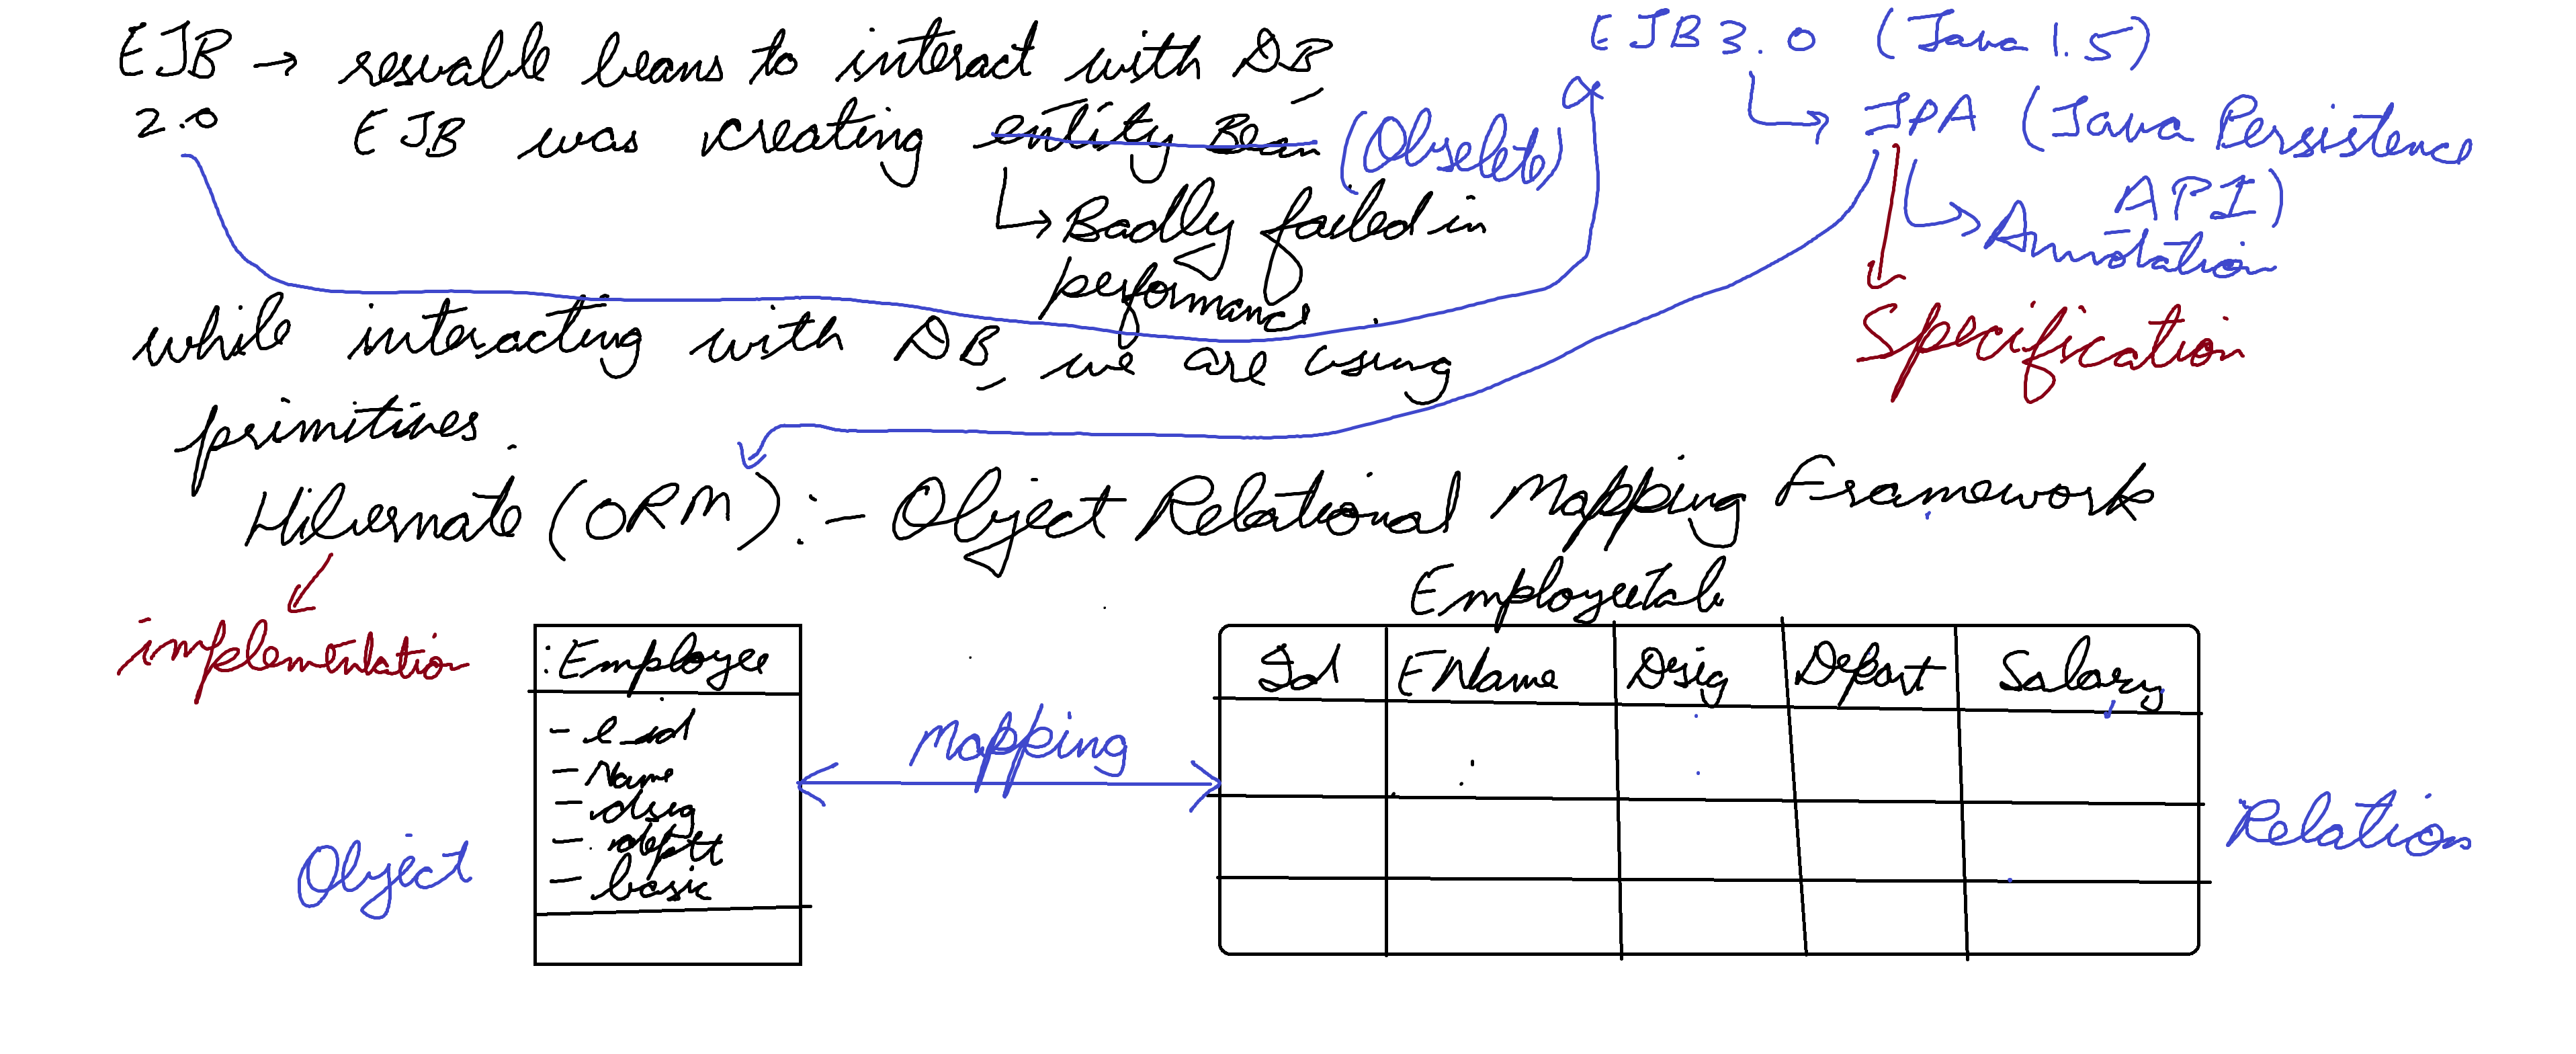 EJB → resuable beans to interact with DB
2.0 EJB was creating entity Bean (Obselete)
↳ Badly failed in
performance
EJB 3.0 (Java 1.5)
↳ JPA (Java Persistence
API)
↳ Annotation
Specification
while interacting with DB, we are using
primitives.
Hibernate (ORM) :- Object Relational Mapping Framework
implementation
:Employee
- e_id
- Name
- desig
- deptt
- basic
Object
Mapping
Employeetab
Id EName Desig Depart Salary
Relation